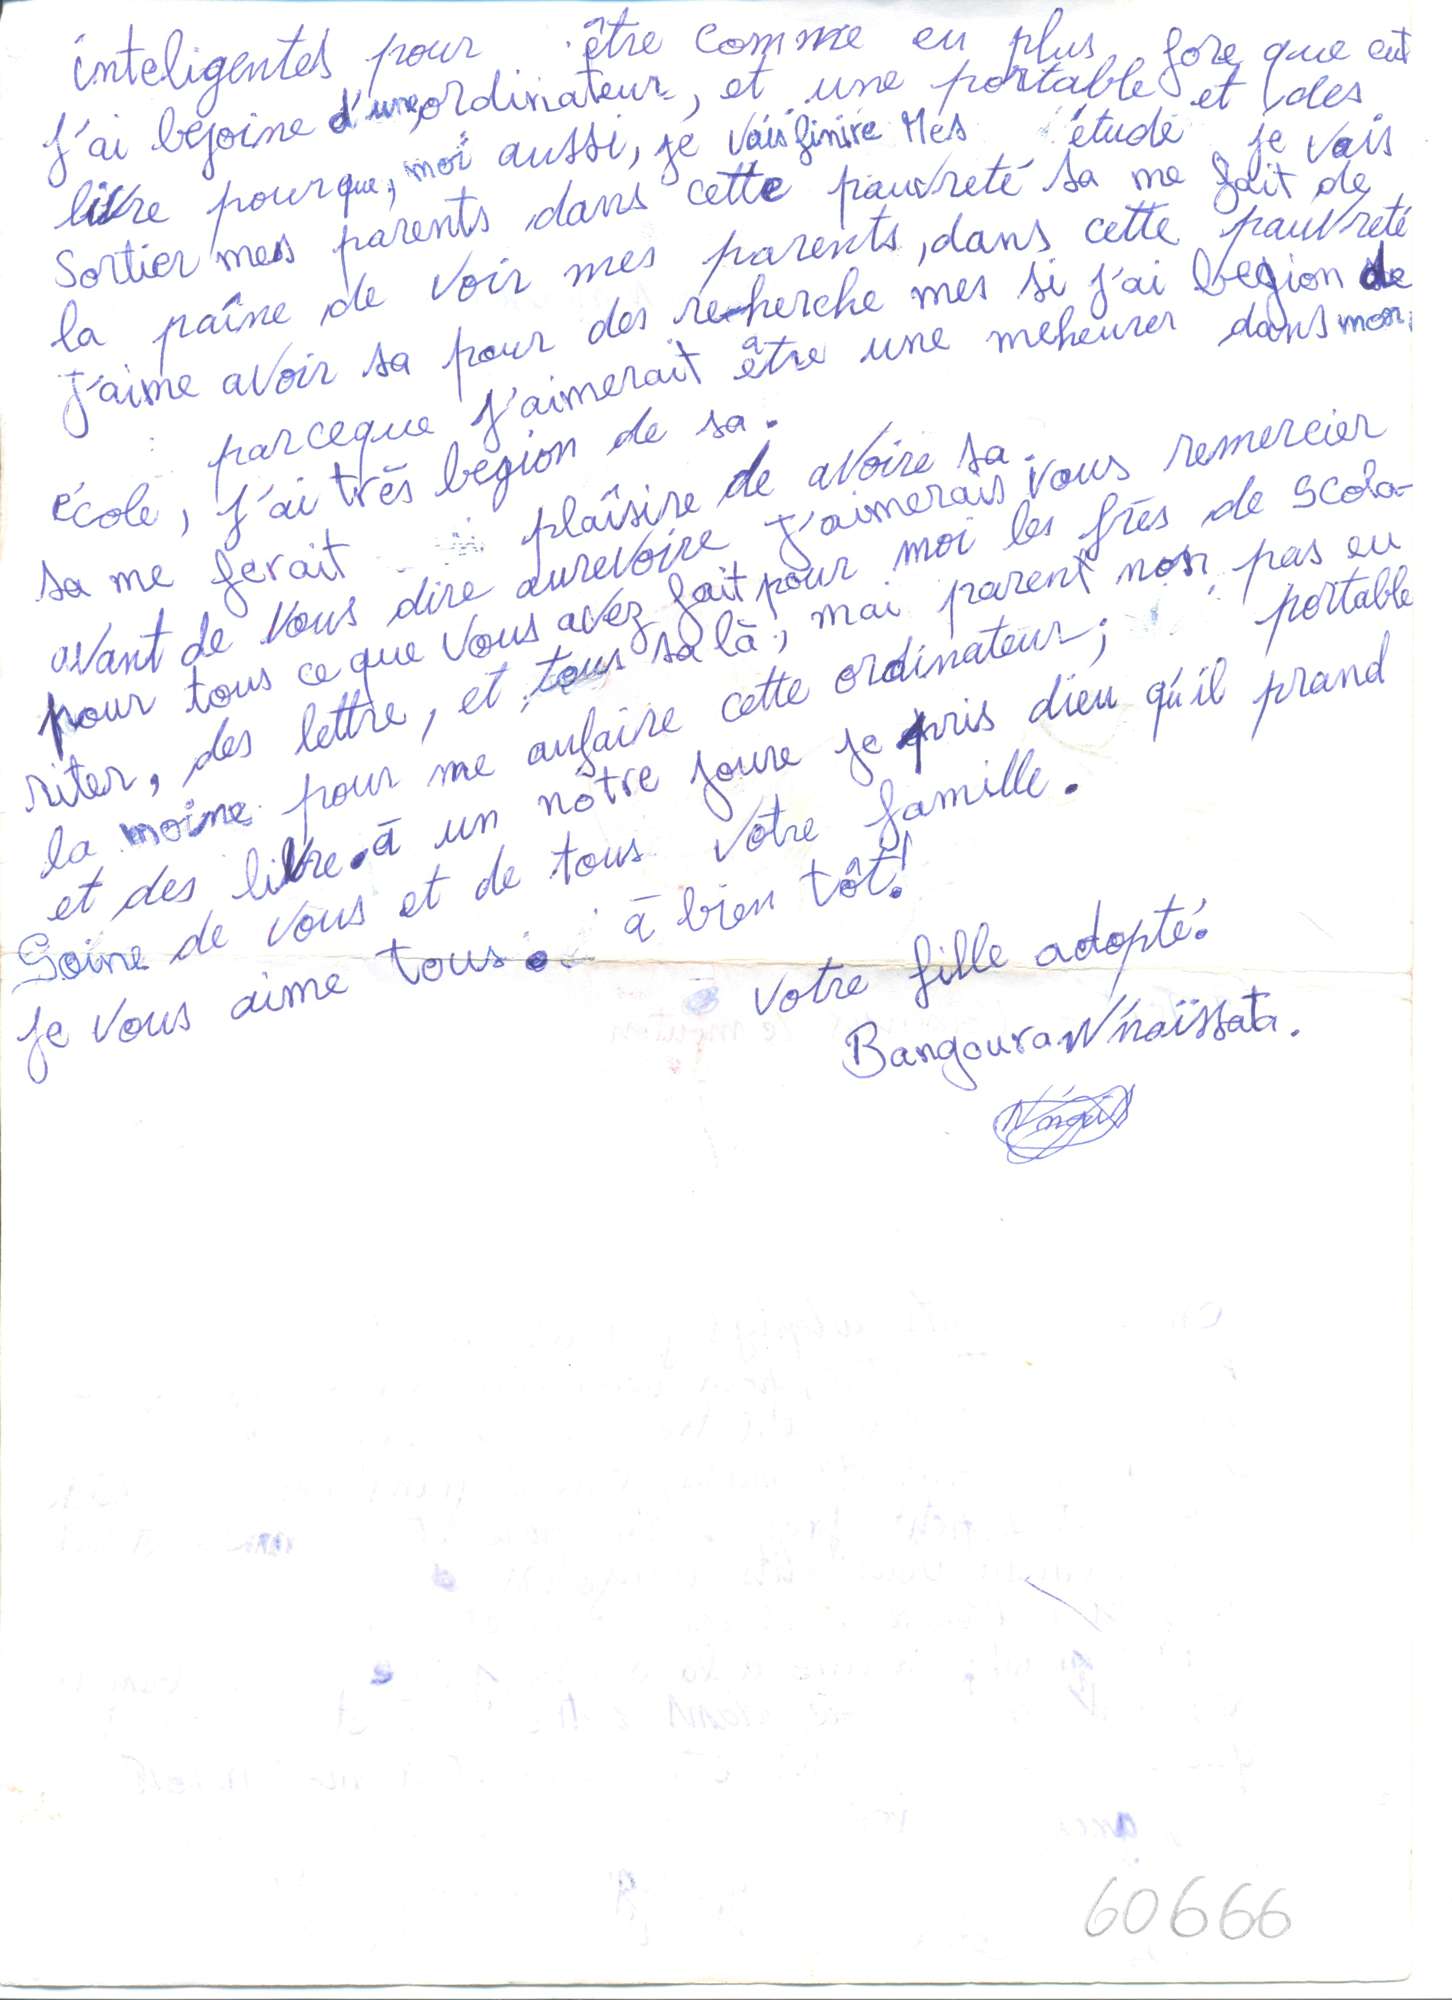 inteligentes pour être comme eu plus fore que eut
J'ai bejoine d'une ordinateur, et une portable et des
livre pour que, moi aussi, je vais finire Mes étude je vais
Sortier mes parents dans cette pauvreté sa me fait de
la païne de voir mes parents, dans cette pauvreté
J'aime avoir sa pour des reherche mes si j'ai begion de
parceque J'aimerait être une meheurer dans mon
école, j'ai très begion de sa.
sa me ferait plaîsire de avoire sa.
avant de vous dire aurevoire J'aimerais vous remercier
pour tous ce que vous avez fait pour moi les frès de scola-
riter, des lettre, et tous sa là, mai parent non pas eu
la moine pour me aufaire cette ordinateur; portable
et des livre. à un nôtre joure je pris dieu qu'il prand
Soine de vous et de tous votre famille.
je vous aime tous. à bien tôt!
votre fille adopté.
Bangoura N'naïssata.
60666